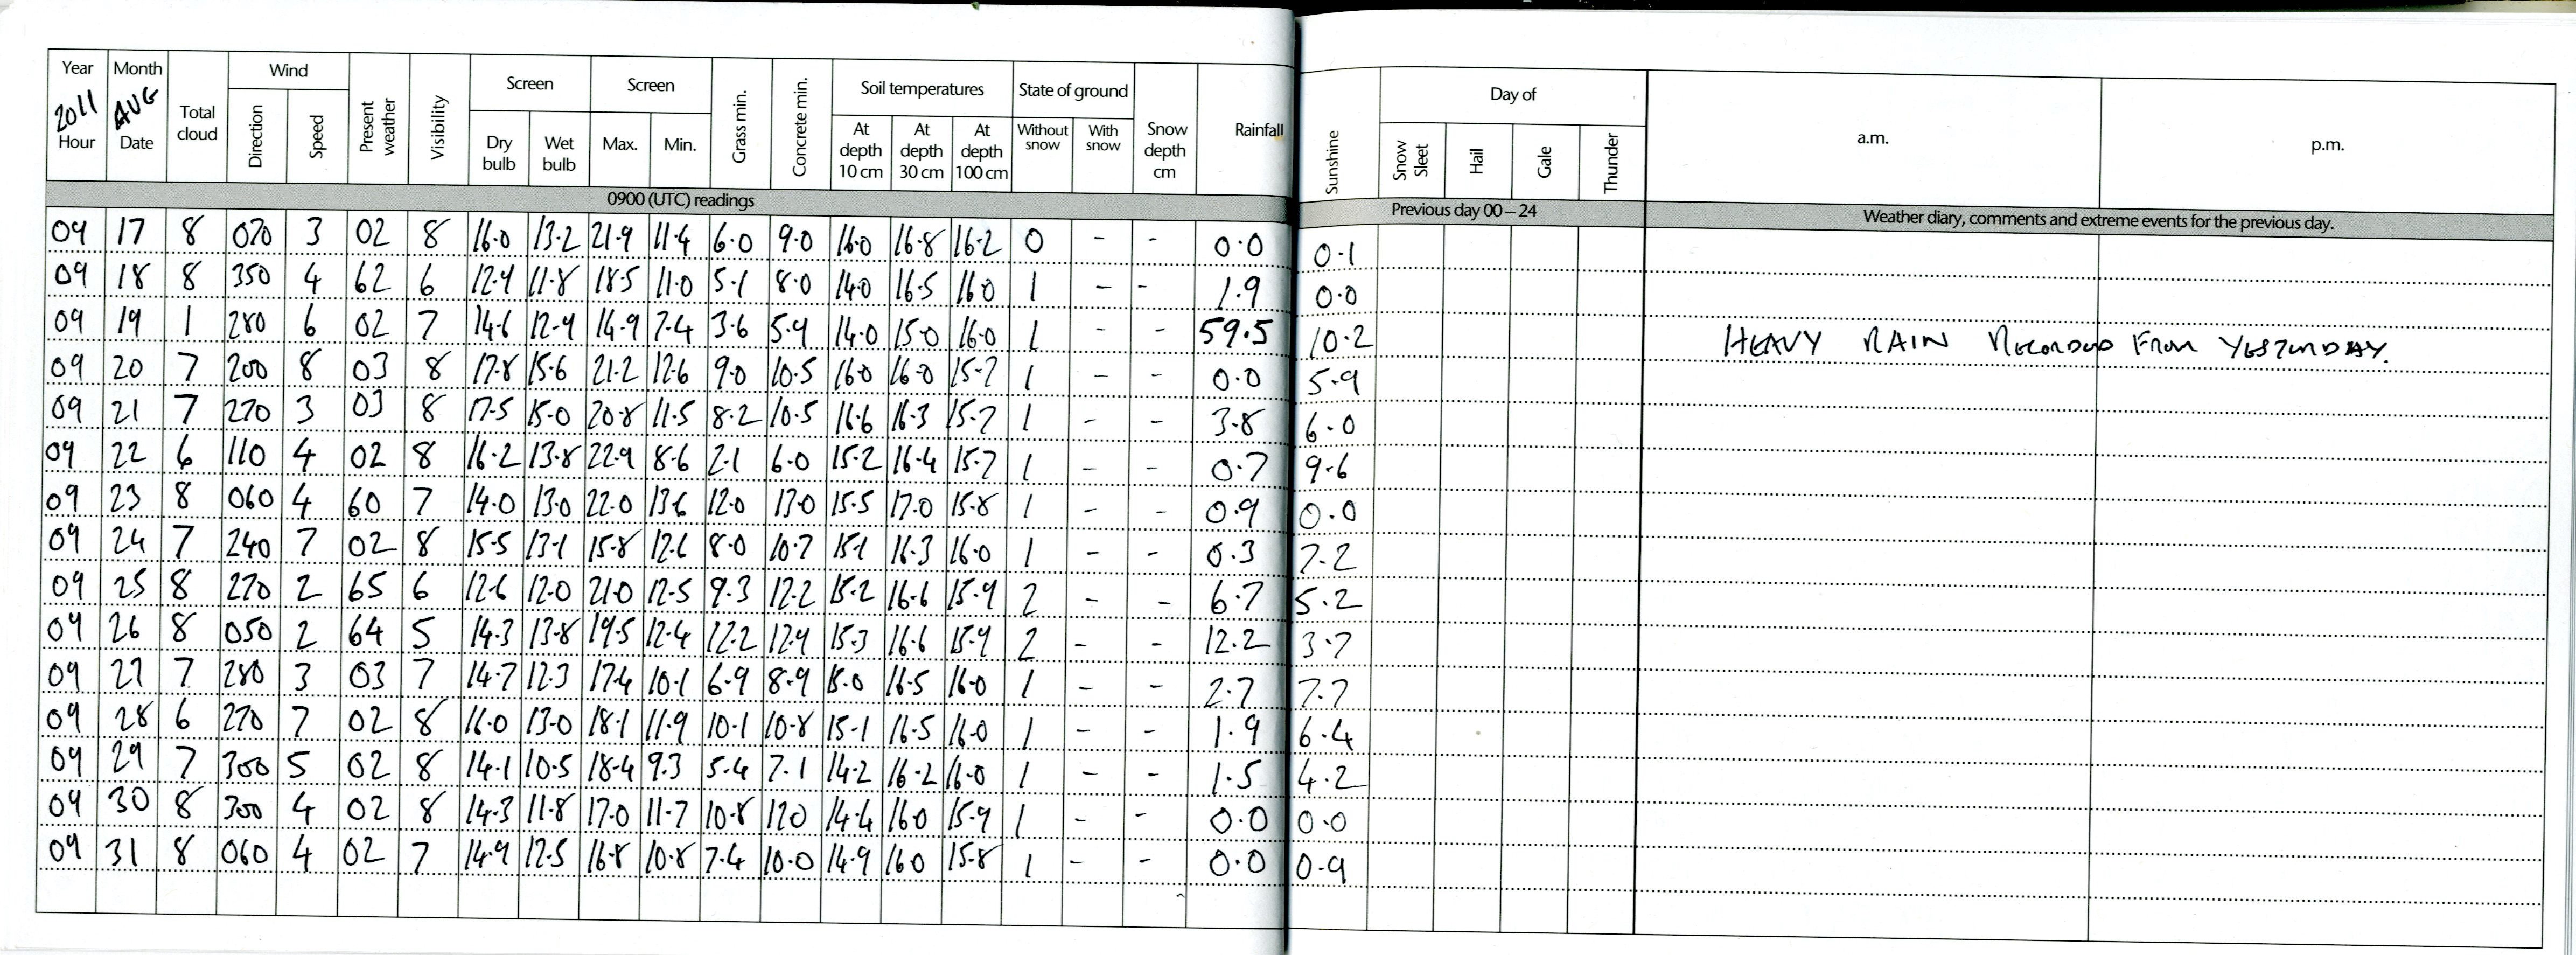 Year Month Total cloud Wind Present weather Visibility Screen Screen Grass min. Concrete min. Soil temperatures State of ground Snow depth cm Rainfall Sunshine Day of a.m. p.m.
2011 AUG
Hour Date Direction Speed Dry bulb Wet bulb Max. Min. At depth 10 cm At depth 30 cm At depth 100 cm Without snow With snow Snow Sleet Hail Gale Thunder
0900 (UTC) readings Previous day 00 – 24 Weather diary, comments and extreme events for the previous day.
09 17 8 070 3 02 8 16.0 13.2 21.9 11.4 6.0 9.0 16.0 16.8 16.2 0 - - 0.0 0.1
09 18 8 350 4 62 6 12.9 11.8 18.5 11.0 5.1 8.0 14.0 16.5 16.0 1 - - 1.9 0.0
09 19 1 280 6 02 7 14.6 12.9 14.9 7.4 3.6 5.9 14.0 15.0 16.0 1 - - 59.5 10.2 HEAVY RAIN RECORDED FROM YESTERDAY.
09 20 7 200 8 03 8 17.8 15.6 21.2 12.6 9.0 10.5 16.0 16.0 15.7 1 - - 0.0 5.9
09 21 7 270 3 03 8 17.5 15.0 20.8 11.5 8.2 10.5 16.6 16.3 15.7 1 - - 3.8 6.0
09 22 6 110 4 02 8 16.2 13.8 22.9 8.6 2.1 6.0 15.2 16.4 15.7 1 - - 0.7 9.6
09 23 8 060 4 60 7 14.0 13.0 22.0 13.6 12.0 13.0 15.5 17.0 15.8 1 - - 0.9 0.0
09 24 7 240 7 02 8 15.5 13.1 15.8 12.6 8.0 10.7 15.1 16.3 16.0 1 - - 0.3 7.2
09 25 8 270 2 65 6 12.6 12.0 21.0 12.5 9.3 12.2 15.2 16.6 15.9 2 - - 6.7 5.2
09 26 8 050 2 64 5 14.3 13.8 19.5 12.4 12.2 12.9 15.3 16.6 15.9 2 - - 12.2 3.7
09 27 7 280 3 03 7 14.7 12.3 17.4 10.1 6.9 8.9 15.0 16.5 16.0 1 - - 2.7 7.7
09 28 6 270 7 02 8 16.0 13.0 18.1 11.9 10.1 10.8 15.1 16.5 16.0 1 - - 1.9 6.4
09 29 7 300 5 02 8 14.1 10.5 18.4 9.3 5.4 7.1 14.2 16.2 16.0 1 - - 1.5 4.2
09 30 8 300 4 02 8 14.3 11.8 17.0 11.7 10.8 12.0 14.4 16.0 15.9 1 - - 0.0 0.0
09 31 8 060 4 02 7 14.9 12.5 16.8 10.8 7.4 10.0 14.9 16.0 15.8 1 - - 0.0 0.9